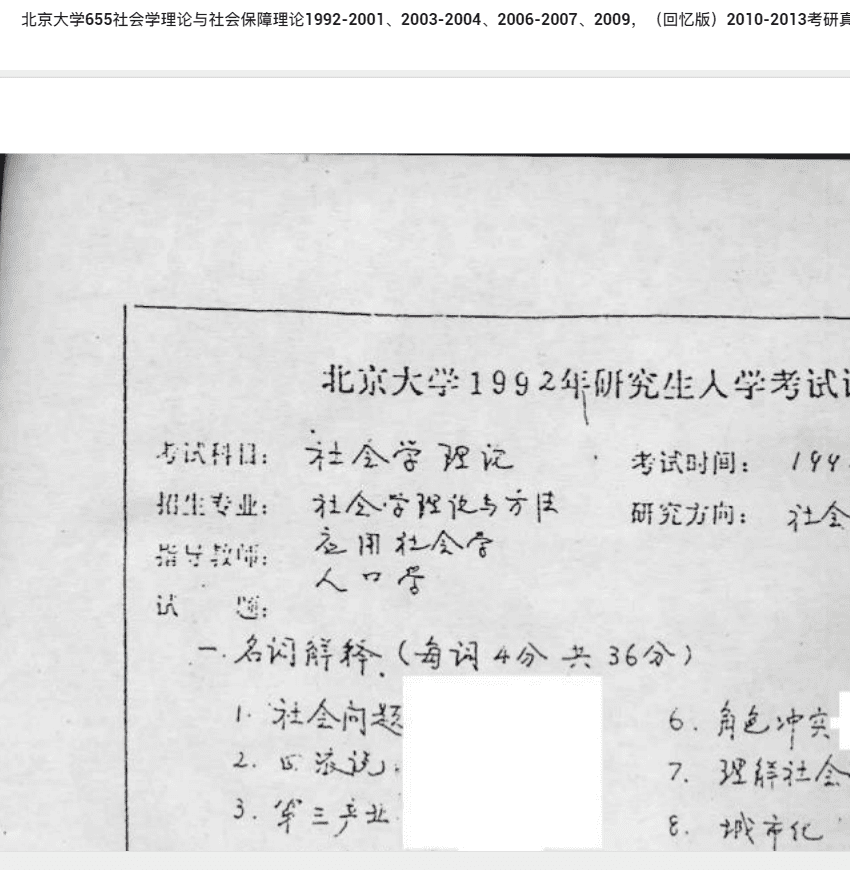 北京大学655社会学理论与社会保障理论1992-2001、2003-2004、2006-2007、2009，（回忆版）2010-2013考研真
北京大学1992年研究生入学考试
考试科目： 社会学理论
考试时间： 199
招生专业： 社会学理论与方法
研究方向： 社会
指导教师： 应用社会学
人口学
试 题：
一. 名词解释.（每词4分 共36分）
1. 社会问题
6. 角色冲突
2.
7. 理解社会
3. 第三产业
8. 城市化